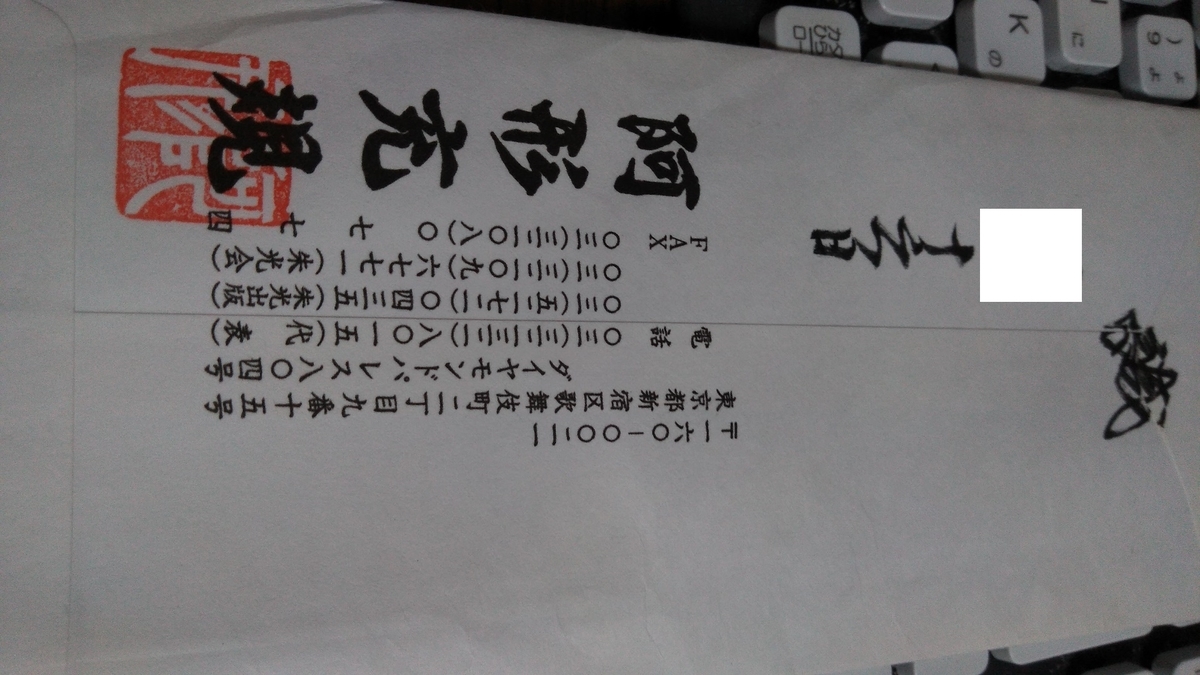 〒一六〇-〇〇二一
東京都新宿区歌舞伎町二丁目九番十五号
ダイヤモンドパレス八〇四号
電話 〇三(三二三二)八〇一五(代表)
〇三(五二七二)〇四三五(朱光出版)
〇三(三二〇九)六七七一(朱光会)
FAX 〇三(三二〇八)〇七七四
阿形充規